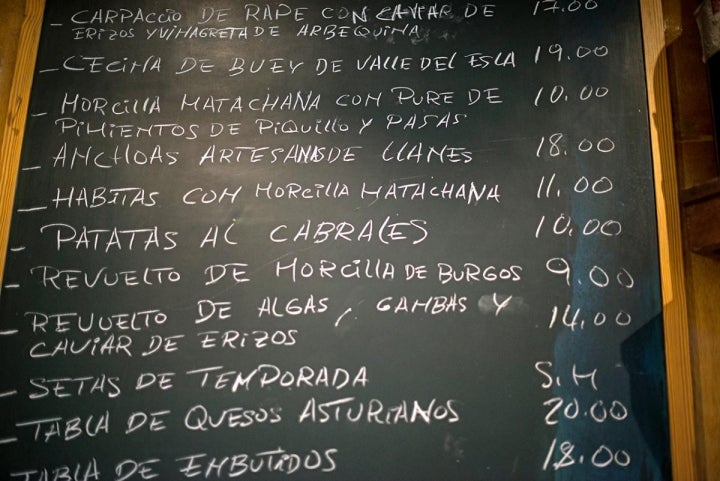 - CARPACCIO DE RAPE CON CAVIAR DE 17.00
ERIZOS Y VINAGRETA DE ARBEQUINA
- CECINA DE BUEY DE VALLE DEL ESLA 19.00
- MORCILLA MATACHANA CON PURE DE 10.00
PIMIENTOS DE PIQUILLO Y PASAS
- ANCHOAS ARTESANAS DE LLANES 18.00
- HABITAS CON MORCILLA MATACHANA 11.00
- PATATAS AL CABRALES 10.00
- REVUELTO DE MORCILLA DE BURGOS 9.00
- REVUELTO DE ALGAS, GAMBAS Y 14.00
CAVIAR DE ERIZOS
- SETAS DE TEMPORADA S.M
- TABLA DE QUESOS ASTURIANOS 20.00
TABLA DE EMBUTIDOS 18.00